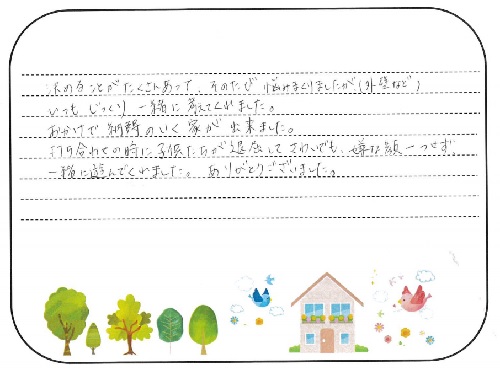 決めることがたくさんあって、そのたび悩みまくりましたが(外壁など)
いつもじっくり一緒に考えてくれました。
おかげで納得のいく家が出来ました。
打ち合わせの時に子供たちが退屈してさわいでも、嫌な顔一つせず、
一緒に遊んでくれました。ありがとうございました。